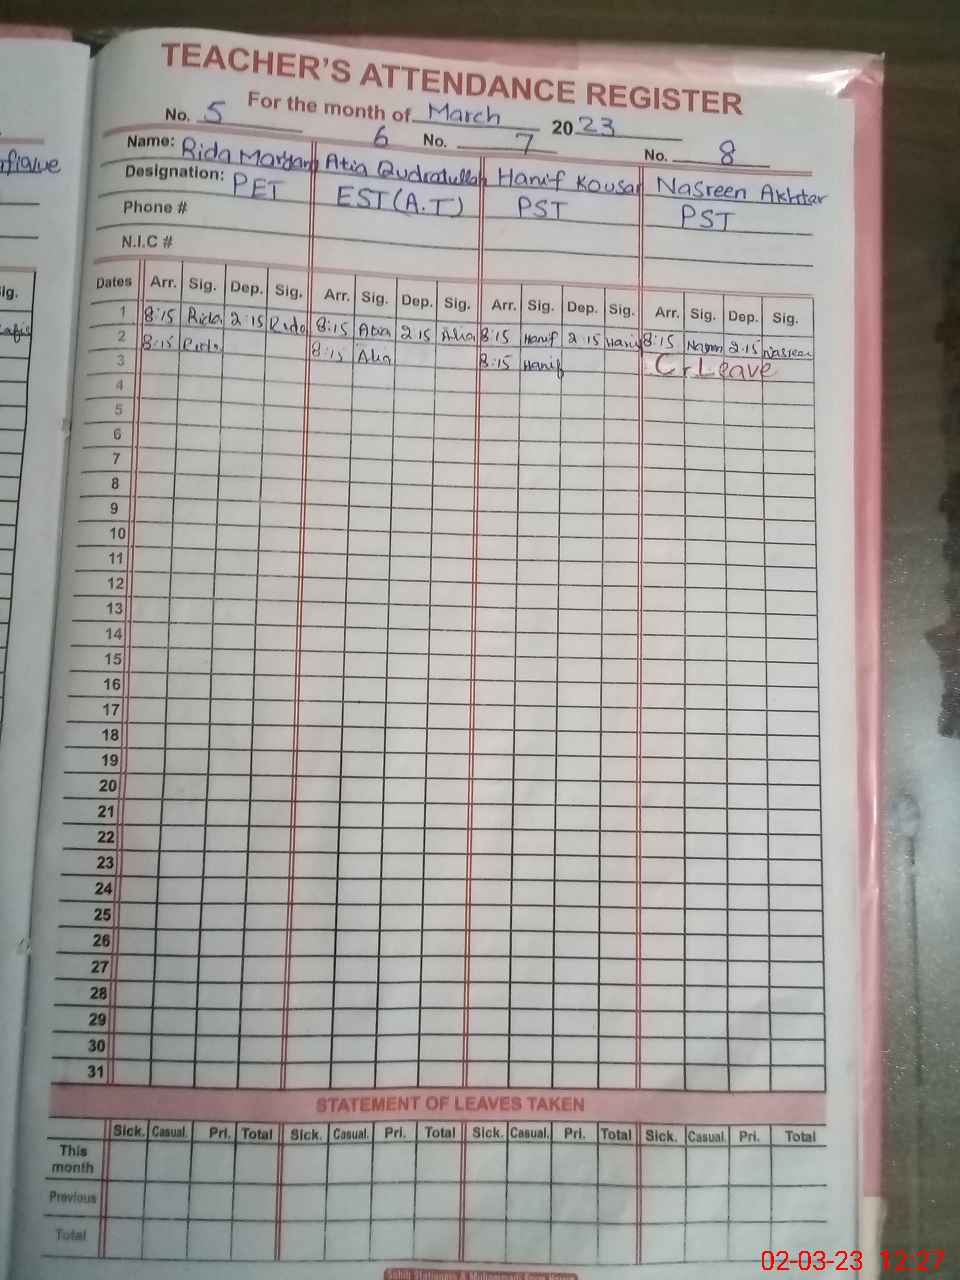 TEACHER'S ATTENDANCE REGISTER
For the month of March 2023
No. 5 6 No. 7 No. 8
Name: Rida Maryam Atia Qudratullah Hanif Kousar Nasreen Akhtar
Designation: PET EST (A.T) PST PST
Phone #
N.I.C #
Dates Arr. Sig. Dep. Sig. Arr. Sig. Dep. Sig. Arr. Sig. Dep. Sig. Arr. Sig. Dep. Sig.
1 8:15 Rida 2:15 Rida 8:15 Atia 2:15 Atia 8:15 Hanif 2:15 Hanif 8:15 Nasreen 2:15 Nasreen
2 8:15 Rida 8:15 Atia 8:15 Hanif C. Leave
3
4
5
6
7
8
9
10
11
12
13
14
15
16
17
18
19
20
21
22
23
24
25
26
27
28
29
30
31
STATEMENT OF LEAVES TAKEN
Sick. Casual. Pri. Total Sick. Casual. Pri. Total Sick. Casual. Pri. Total Sick. Casual. Pri. Total
This month
Previous
Total
02-03-23 12:27